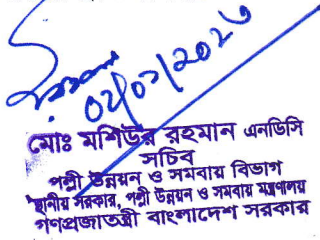 ০২/০১/২০২৩
মোঃ মশিউর রহমান এনডিসি
সচিব
পল্লী উন্নয়ন ও সমবায় বিভাগ
স্থানীয় সরকার, পল্লী উন্নয়ন ও সমবায় মন্ত্রণালয়
গণপ্রজাতন্ত্রী বাংলাদেশ সরকার